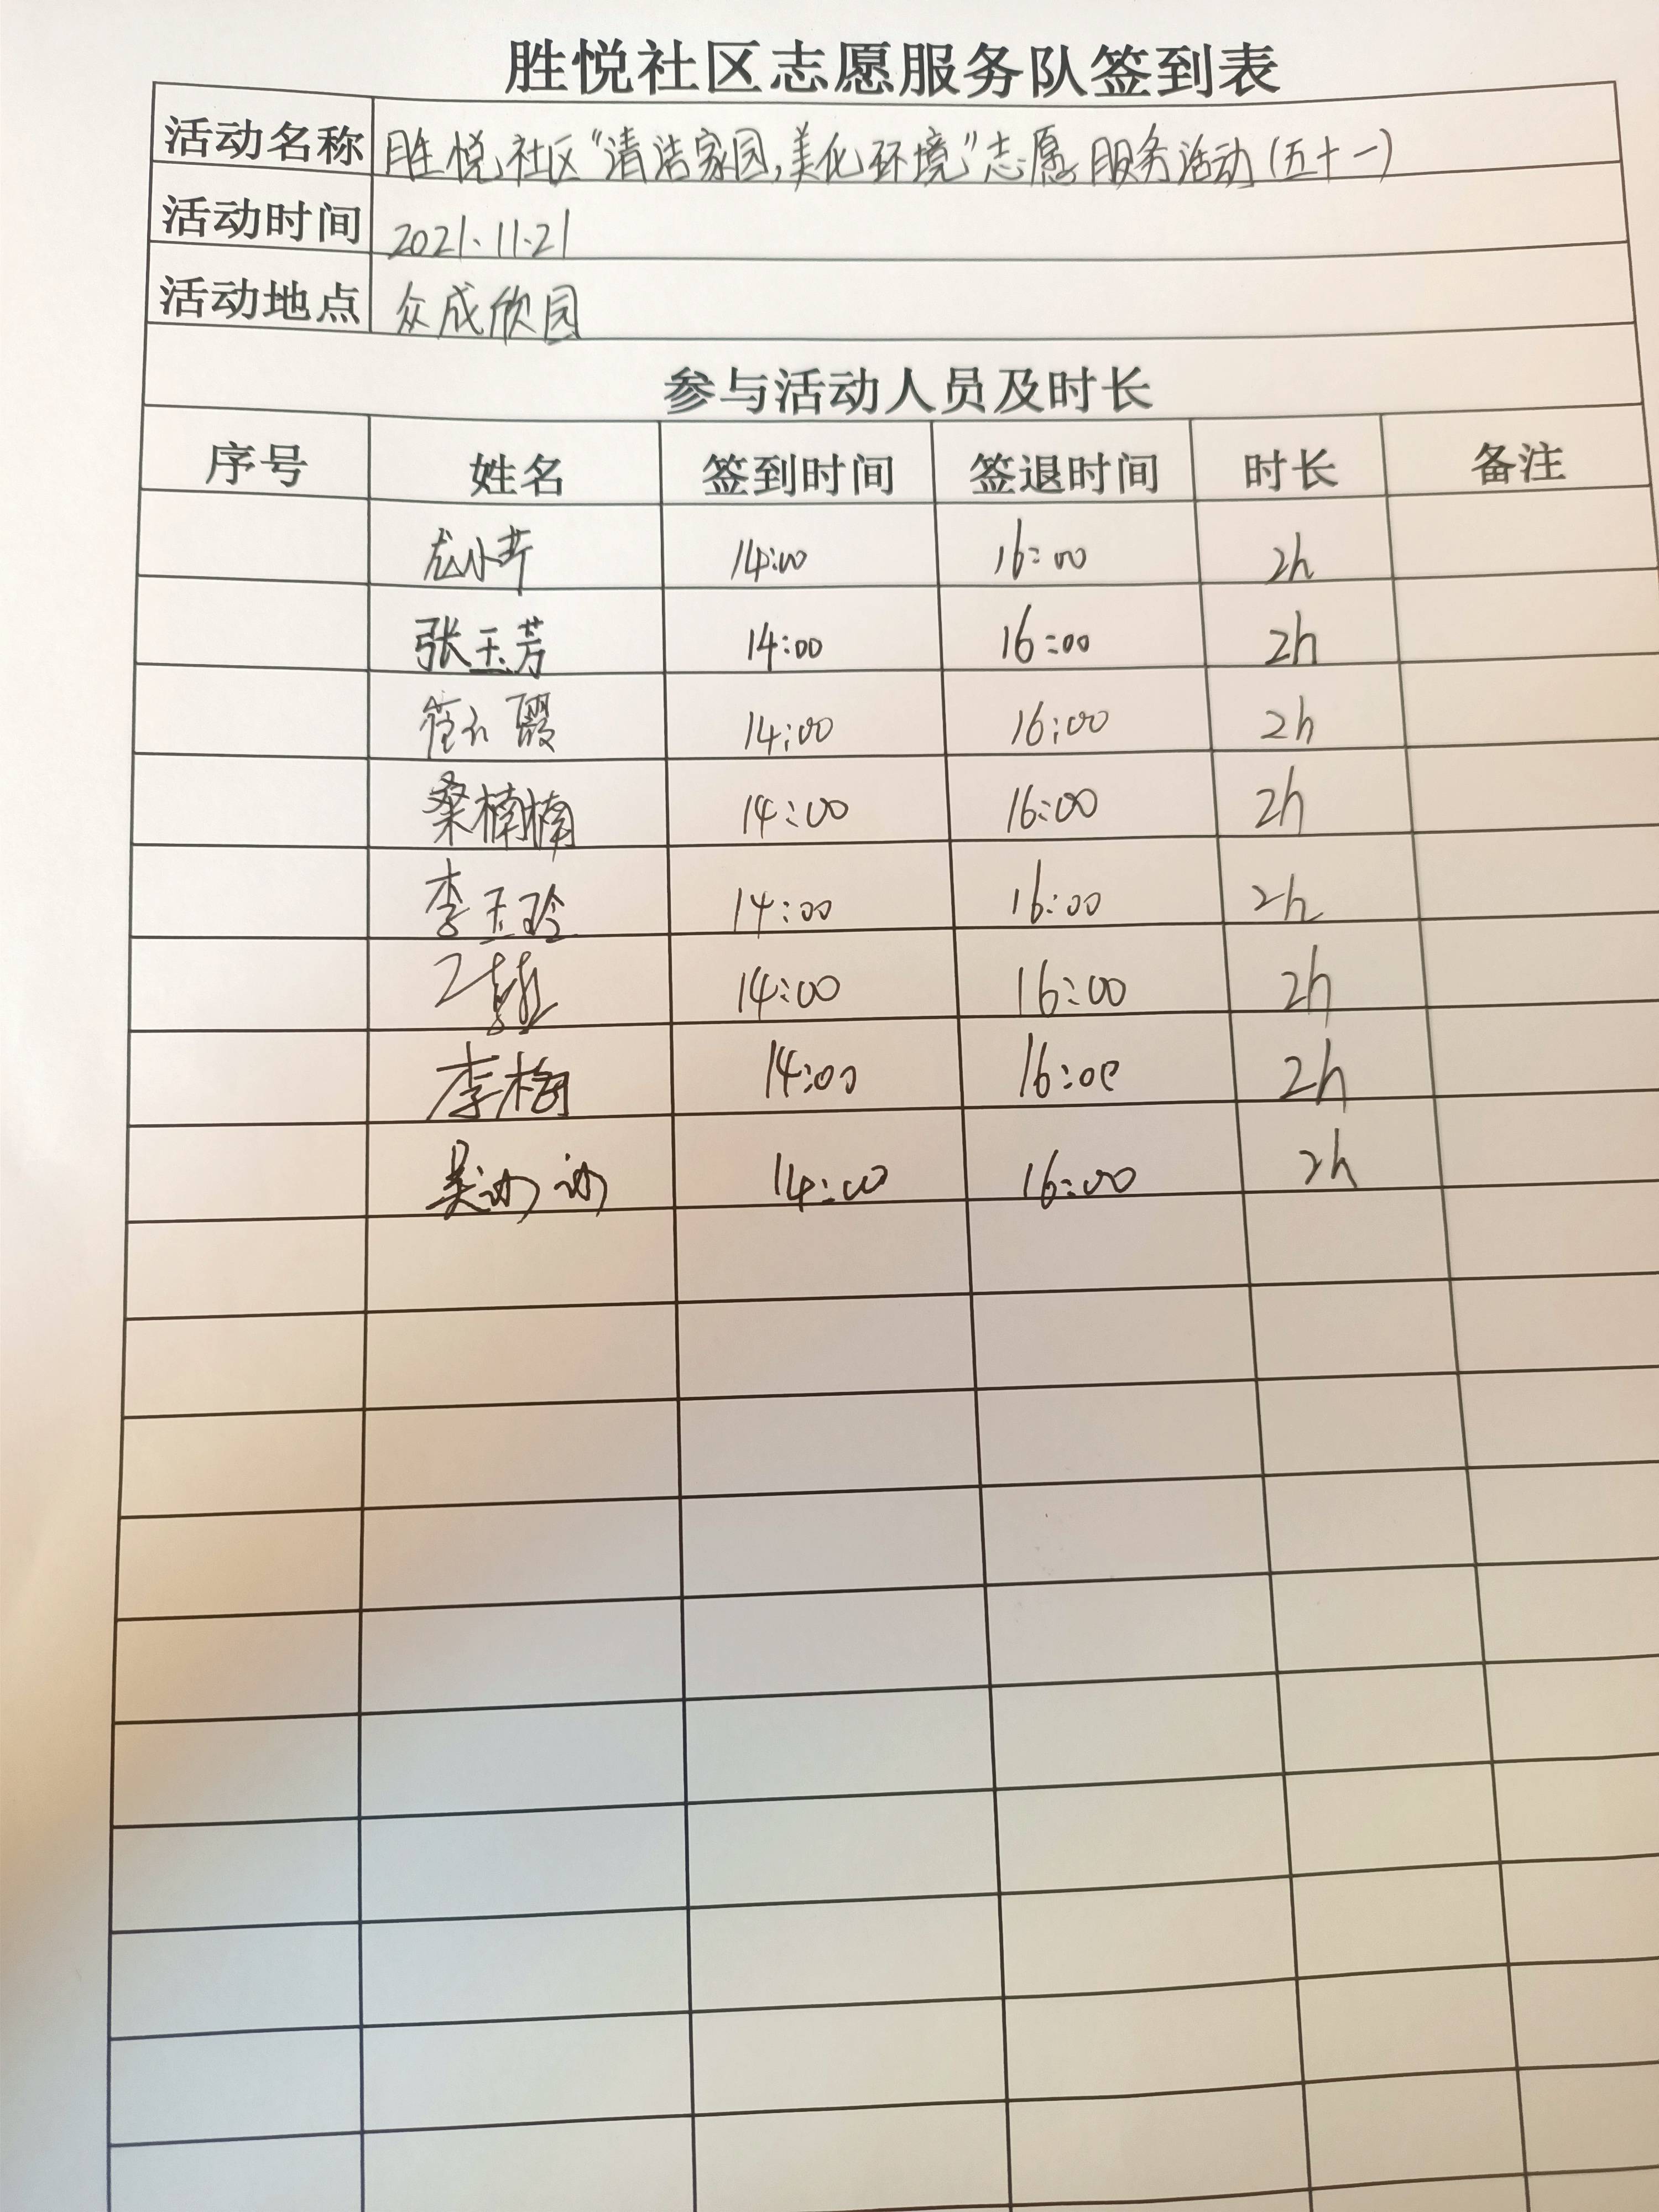 胜悦社区志愿服务队签到表
活动名称 胜悦社区“清洁家园,美化环境”志愿服务活动(五十一)
活动时间 2021.11.21
活动地点 众成欣园
参与活动人员及时长
序号 姓名 签到时间 签退时间 时长 备注
14:00 16:00 2h
张玉芳 14:00 16:00 2h
14:00 16:00 2h
桑楠楠 14:00 16:00 2h
李玉玲 14:00 16:00 2h
14:00 16:00 2h
李梅 14:00 16:00 2h
14:00 16:00 2h